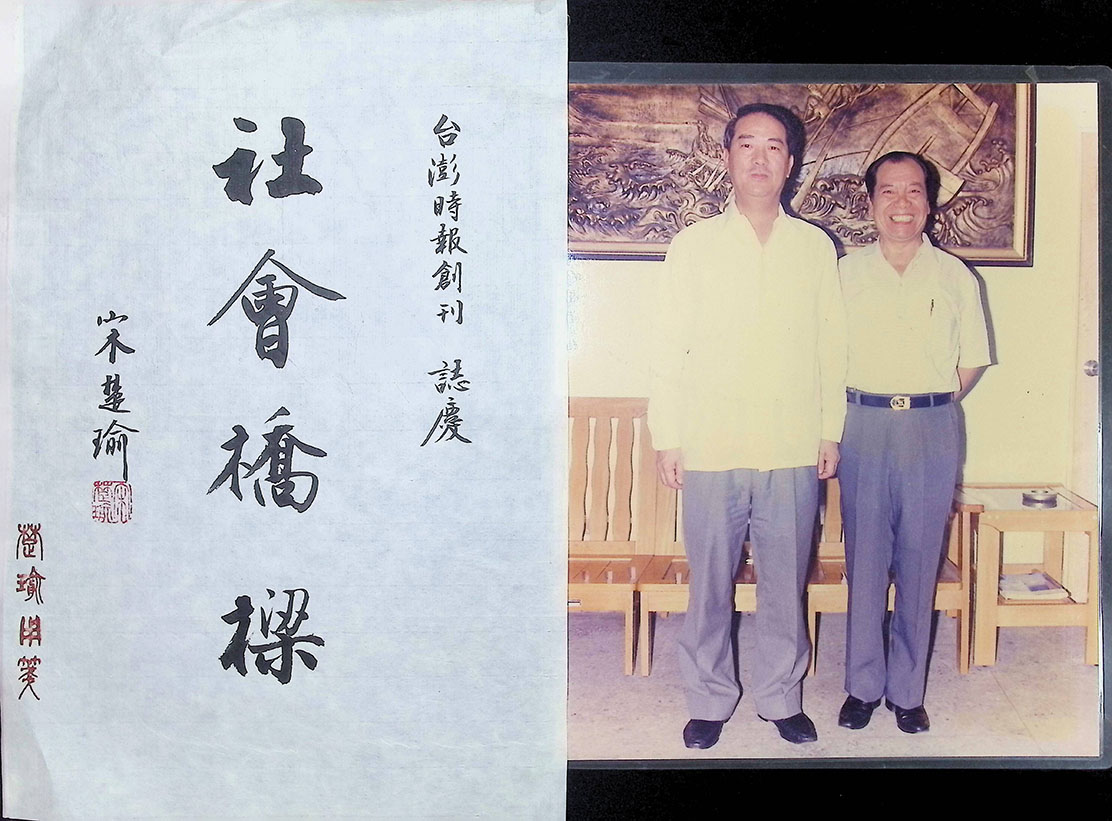 台澎時報創刊 誌慶
社會橋樑
宋楚瑜
楚瑜用箋